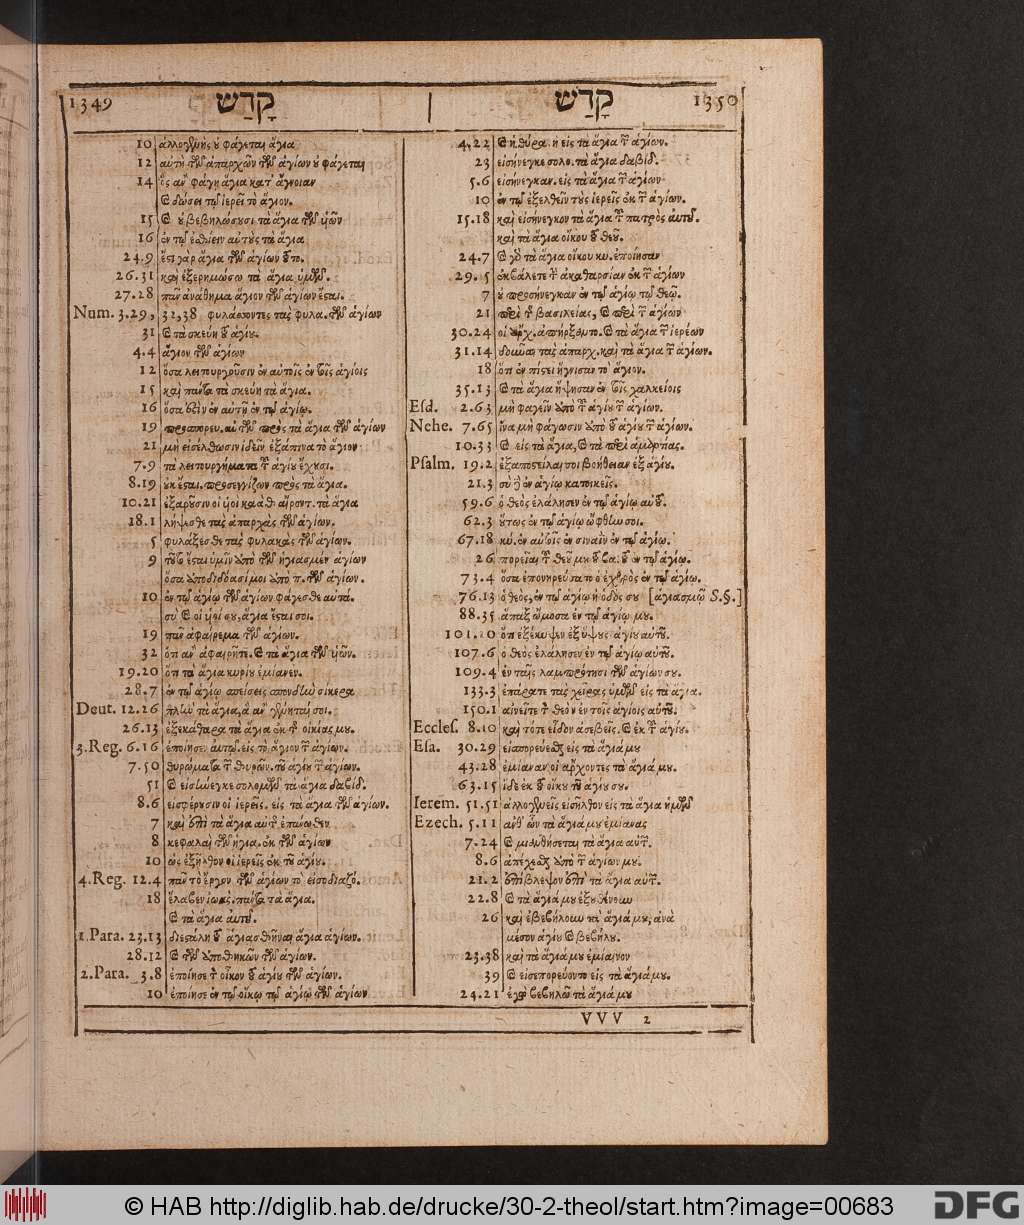 1349 קָדַשׁ
10 ἀλλογενὴς οὐ φάγεται ἅγια
12 αὐτὴ τῶν ἀπαρχῶν τῶν ἁγίων οὐ φάγεται
14 ὃς ἂν φάγῃ ἅγια κατ' ἄγνοιαν
καὶ δώσει τῷ ἱερεῖ τὸ ἅγιον.
15 καὶ οὐ βεβηλώσουσι τὰ ἅγια τῶν υἱῶν
16 ἐν τῷ ἐσθίειν αὐτοὺς τὰ ἅγια
24.9 ἔστι γὰρ ἅγια τῶν ἁγίων τοῦτο.
26.31 καὶ ἐξερημώσω τὰ ἅγια ὑμῶν.
27.28 πᾶν ἀνάθημα ἅγιον τῶν ἁγίων ἔσται.
Num. 3.29, 31,38 φυλάσσοντες τὰς φυλα. τῶν ἁγίων
31 καὶ τὰ σκεύη τοῦ ἁγίου.
4.4 ἅγιον τῶν ἁγίων
12 ὅσα λειτουργοῦσιν ἐν αὐτοῖς ἐν τοῖς ἁγίοις
15 καὶ πάντα τὰ σκεύη τὰ ἅγια.
16 ὅσα ἐστὶν ἐν αὐτῇ ἐν τῷ ἁγίῳ.
19 προσπορευ. αὐ τῶν πρὸς τὰ ἅγια τῶν ἁγίων
21 μὴ εἰσέλθωσιν ἰδεῖν ἐξάπινα τὸ ἅγιον
7.9 τὰ λειτουργήματα τοῦ ἁγίου ἔχουσι.
8.19 οὐκ ἔσται. προσεγγίζων πρὸς τὰ ἅγια.
10.21 ἐξαροῦσιν οἱ υἱοὶ καὰθ αἴροντ. τὰ ἅγια
18.1 λήψεσθε τὰς ἀπαρχὰς τῶν ἁγίων.
5 φυλάξεσθε τὰς φυλακὰς τῶν ἁγίων.
9 τοῦτο ἔσται ὑμῖν ἀπὸ τῶν ἡγιασμέν ἁγίων
ὅσα ἀποδιδόασί μοι ἀπὸ π. τῶν ἁγίων.
10 ἐν τῷ ἁγίῳ τῶν ἁγίων φάγεσθε αὐτά.
σὺ καὶ οἱ υἱοί σου, ἅγια ἔσται σοι.
19 πᾶν ἀφαίρεμα τῶν ἁγίων.
32 ὅτι ἂν ἀφαιρῆτε. καὶ τὰ ἅγια τῶν υἱῶν.
19.20 ὅτι τὰ ἅγια κυρίου ἐμίανεν.
28.7 ἐν τῷ ἁγίῳ σπείσεις σπονδὴν σίκερα
Deut. 12.26 πλὴν τὰ ἅγια, ἃ ἂν γένηταί σοι.
26.13 ἐξεκάθαρα τὰ ἅγια ἐκ τῆς οἰκίας μου.
3.Reg. 6.16 ἐποίησεν αὐτῷ. εἰς τὸ ἅγιον τῶν ἁγίων.
7.50 θυρώματα τῶν θυρῶν. τοῦ ἁγίου τῶν ἁγίων.
51 καὶ εἰσήνεγκε σολομὼν τὰ ἅγια δαβίδ.
8.6 εἰσφέρουσιν οἱ ἱερεῖς. εἰς τὰ ἅγια τῶν ἁγίων.
7 καὶ ἐπὶ τὰ ἅγια αὐτῆς ἐπάνωθεν
8 κεφαλαὶ τῶν ἡγια. ἐκ τῶν ἁγίων
10 ὡς ἐξῆλθον οἱ ἱερεῖς ἐκ τοῦ ἁγίου.
4.Reg. 12.4 πᾶν τὸ ἔργον τῶν ἁγίων τὸ εἰσοδιαζό.
18 ἔλαβεν ἰωάς. πάντα τὰ ἅγια.
καὶ τὰ ἅγια αὐτοῦ.
1.Para. 23.13 διεστάλη τοῦ ἁγιασθῆναι ἅγια ἁγίων.
28.12 καὶ τῶν ἀποθηκῶν τῶν ἁγίων.
2.Para. 3.8 ἐποίησε τὸν οἶκον τοῦ ἁγίου τῶν ἁγίων.
10 ἐποίησε ἐν τῷ οἴκῳ τῷ ἁγίῳ τῶν ἁγίων
קָדַשׁ 1350
4,22 καὶ ἡ θύρα. ἡ εἰς τὰ ἅγια τῶν ἁγίων.
23 εἰσήνεγκε σολο. τὰ ἅγια δαβίδ.
5.6 εἰσήνεγκαν. εἰς τὰ ἅγια τῶν ἁγίων
10 ἐν τῷ ἐξελθεῖν τοὺς ἱερεῖς ἐκ τῶν ἁγίων.
15.18 καὶ εἰσήνεγκον τὰ ἅγια τοῦ πατρὸς αὐτοῦ.
καὶ τὰ ἅγια οἴκου τοῦ θεοῦ.
24.7 καὶ γὰρ τὰ ἅγια οἴκου κυ. ἐποίησαν
29.5 ἐκβάλετε τὴν ἀκαθαρσίαν ἐκ τῶν ἁγίων
7 οὐ προσήνεγκαν ἐν τῷ ἁγίῳ τῷ θεῷ.
21 περὶ τῆς βασιλείας, καὶ περὶ τῶν ἁγίων
30.24 οἱ ἄρχ. ἀπήρξαντο. καὶ τὰ ἅγια τῶν ἱερέων
31.14 δοῦναι τὰς ἀπαρχ. καὶ τὰ ἅγια τῶν ἁγίων.
18 ὅτι ἐν πίστει ἥγνισαν τὸ ἅγιον.
35.13 καὶ τὰ ἅγια ἥψησαν ἐν τοῖς χαλκείοις
Esd. 2.63 μὴ φαγεῖν ἀπὸ τοῦ ἁγίου τῶν ἁγίων.
Nehe. 7.65 ἵνα μὴ φάγωσιν ἀπὸ τοῦ ἁγίου τῶν ἁγίων.
10.33 καὶ εἰς τὰ ἅγια, καὶ τὰ περὶ ἁμαρτίας.
Psalm. 19.2 ἐξαποστείλαι σοι βοήθειαν ἐξ ἁγίου.
21.3 σὺ δὲ ἐν ἁγίῳ κατοικεῖς.
59.6 ὁ θεὸς ἐλάλησεν ἐν τῷ ἁγίῳ αὐτοῦ.
62.3 οὕτως ἐν τῷ ἁγίῳ ὤφθην σοι.
67.18 κυ. ἐν αὐτοῖς ἐν σιναῒ ἐν τῷ ἁγίῳ.
26 πορεῖαι τοῦ θεοῦ μου τοῦ βα. τοῦ ἐν τῷ ἁγίῳ.
73.4 ὅσα ἐπονηρεύσατο ὁ ἐχθρὸς ἐν τῷ ἁγίῳ.
76.13 ὁ θεὸς, ἐν τῷ ἁγίῳ ἡ ὁδός σου [ἁγιασμῷ S.§.]
88.35 ἅπαξ ὤμοσα ἐν τῷ ἁγίῳ μου.
101.20 ὅτι ἐξέκυψεν ἐξ ὕψους ἁγίου αὐτοῦ.
107.6 ὁ θεὸς ἐλάλησεν ἐν τῷ ἁγίῳ αὐτοῦ.
109.4 ἐν ταῖς λαμπρότησι τῶν ἁγίων σου.
133.3 ἐπάρατε τὰς χεῖρας ὑμῶν εἰς τὰ ἅγια.
150.1 αἰνεῖτε τὸν θεὸν ἐν τοῖς ἁγίοις αὐτοῦ.
Eccles. 8.10 καὶ τότε εἶδον ἀσεβεῖς. καὶ ἐκ τοῦ ἁγίου.
Esa. 30.29 εἰσπορεύεσθαι εἰς τὰ ἅγιά μου
43.28 ἐμίαναν οἱ ἄρχοντες τὰ ἅγιά μου.
63.15 ἴδε ἐκ τοῦ οἴκου τοῦ ἁγίου σου.
Ierem. 51.51 ἀλλογενεῖς εἰσῆλθον εἰς τὰ ἅγια ἡμῶν
Ezech. 5.11 ἀνθ' ὧν τὰ ἅγιά μου ἐμίανας
7.24 καὶ μιανθήσεται τὰ ἅγια αὐτῶν.
8.6 ἀπέχεσθαι ἀπὸ τῶν ἁγίων μου.
21.2 ἐπίβλεψον ἐπὶ τὰ ἅγια αὐτῶν.
22.8 καὶ τὰ ἅγιά μου ἐξουθένουν
26 καὶ ἐβεβήλουν τὰ ἅγιά μου, ἀνὰ
μέσον ἁγίου καὶ βεβήλου.
23.38 καὶ τὰ ἅγιά μου ἐμίαινον
39 καὶ εἰσεπορεύοντο εἰς τὰ ἅγιά μου.
24.21 ἐγὼ βεβηλῶ τὰ ἅγιά μου
VVV 2
© HAB http://diglib.hab.de/drucke/30-2-theol/start.htm?image=00683
DFG